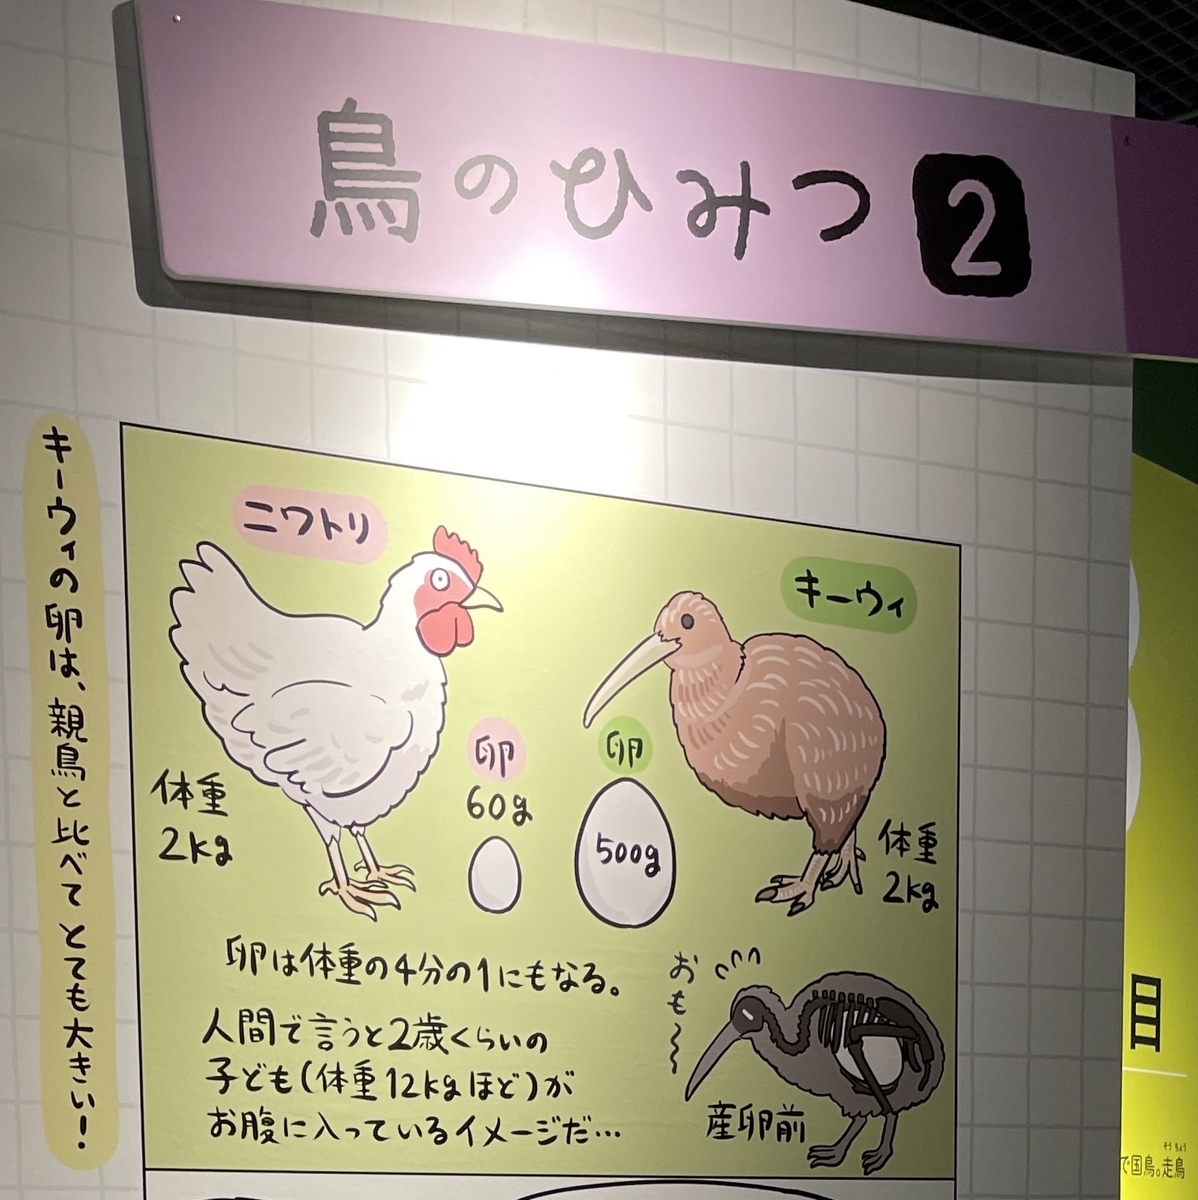 鳥のひみつ 2
キーウィの卵は、親鳥と比べてとても大きい!
ニワトリ
キーウィ
体重
2kg
卵
60g
卵
500g
体重
2kg
卵は体重の4分の1にもなる。
人間で言うと2歳くらいの
子ども(体重12kgほど)が
お腹に入っているイメージだ…
おも〜
産卵前
目
そうちょう
で国鳥。走鳥